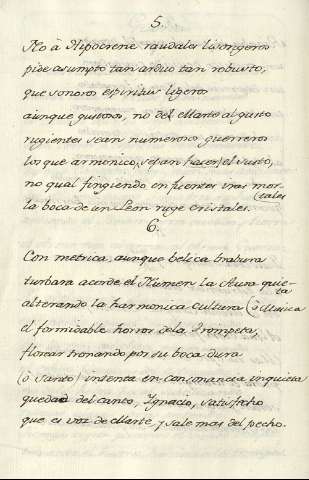 5.
No à Hipocrene raudales lisongeros
pide asumpto tan arduo tan robusto,
que sonoros espiritus ligeros
aunque gustosos, no del Marte al gusto
rugientes sean numeros guerreros
los que armonico, sepan hacer, el susto,
no qual fingiendo en fuentes iras mor-
tales
la boca de un Leon ruge cristales.
6.
Con metrica, aunque belica brabura
turbara acorde el Numen la Aura quie-
ta
alterando la harmonica cultura (ò Musica
el formidable horror de la Trompeta,
florear tronando por su boca dura
(ò Santo) intenta en consonancia inquieta
quedad del canto, Ignacio, satisfecho
que es voz de Marte, y sale mas del pecho.